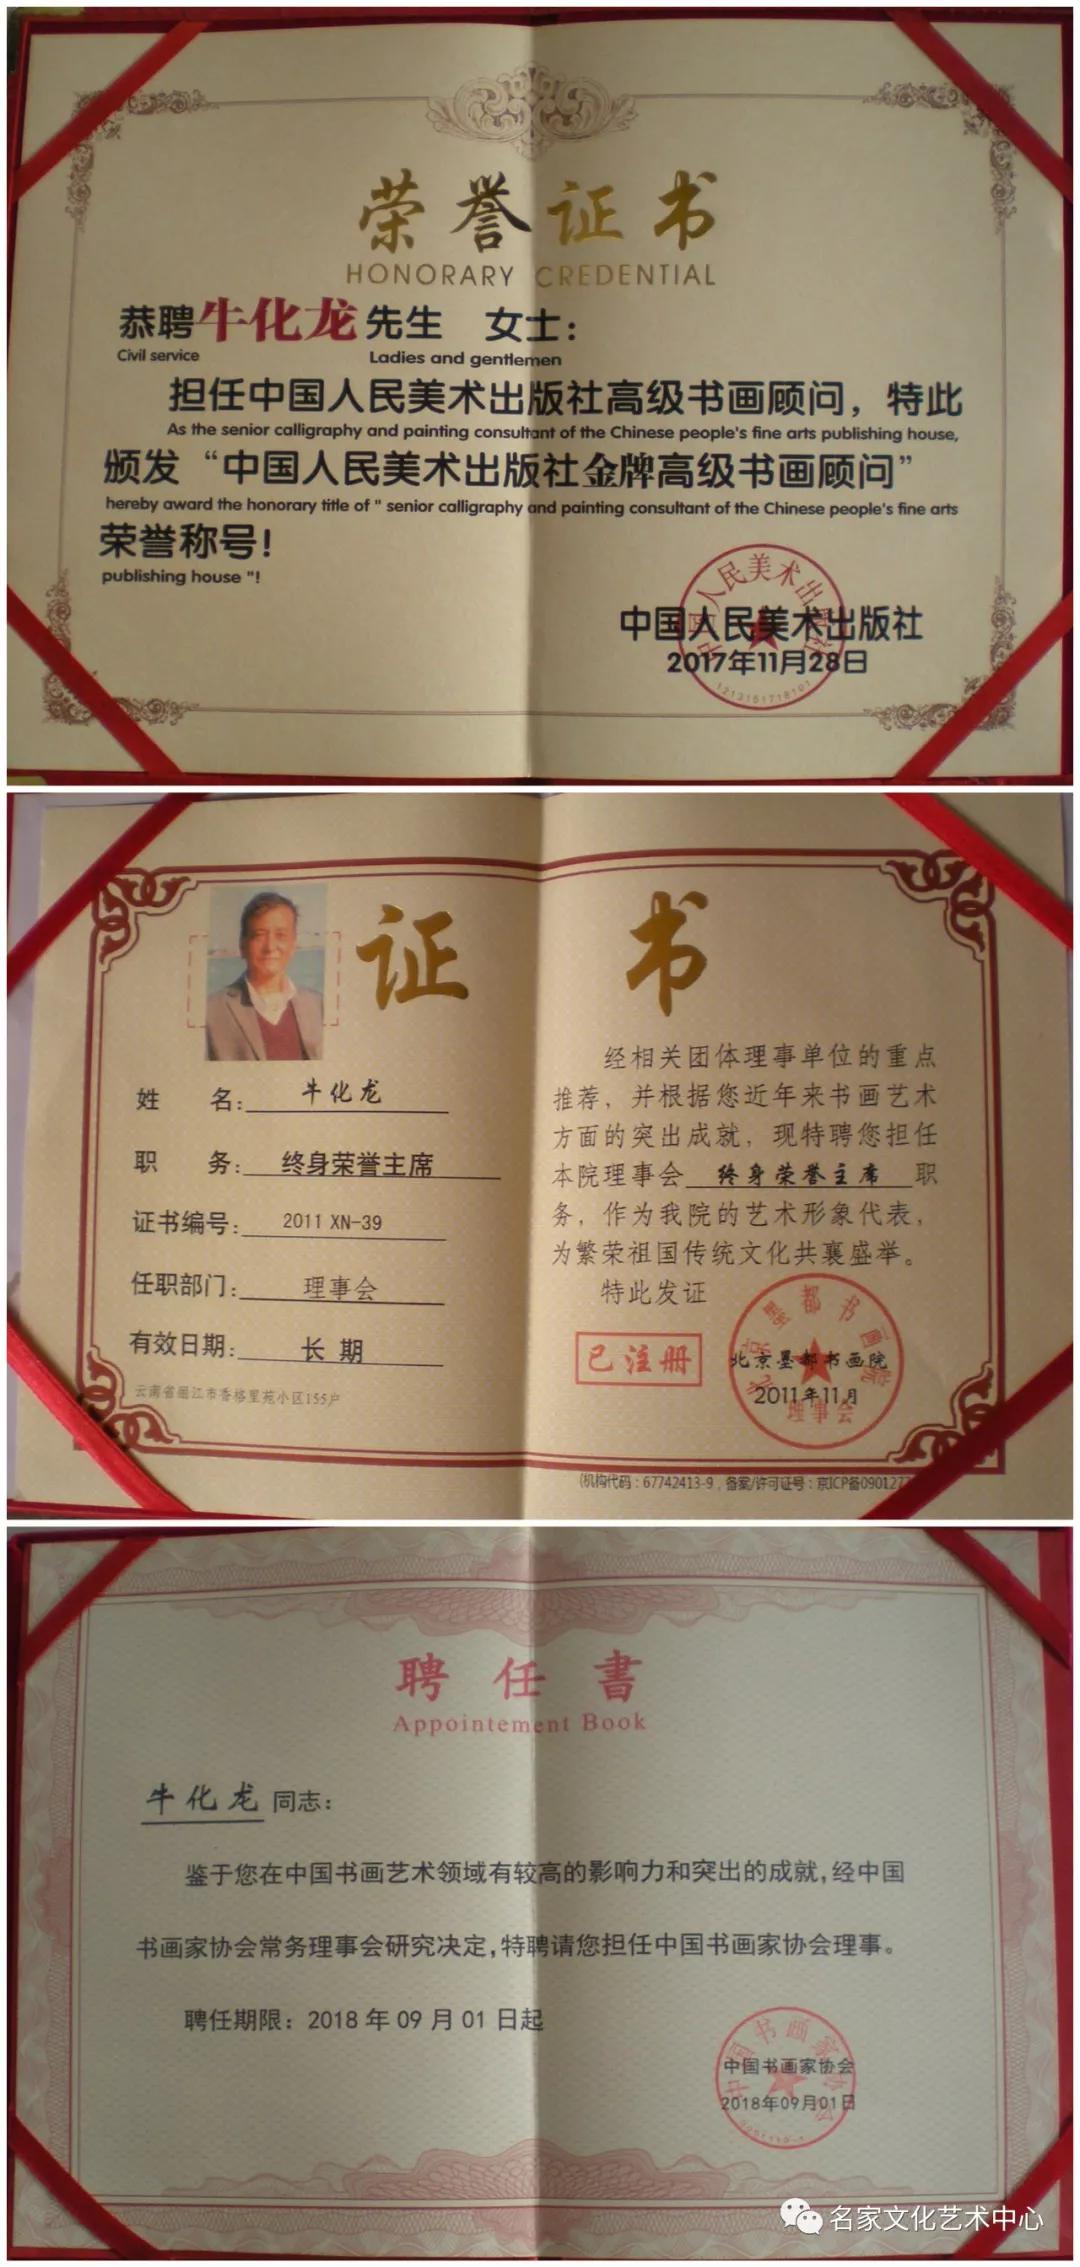 荣誉证书
HONORARY CREDENTIAL
恭聘牛化龙先生 女士:
Civil service Ladies and gentlemen
担任中国人民美术出版社高级书画顾问，特此
As the senior calligraphy and painting consultant of the Chinese people's fine arts publishing house,
颁发“中国人民美术出版社金牌高级书画顾问”
hereby award the honorary title of " senior calligraphy and painting consultant of the Chinese people's fine arts
荣誉称号!
publishing house "!
中国人民美术出版社
中国人民美术出版社
2017年11月28日
1213151718101
证书
姓名: 牛化龙
职务: 终身荣誉主席
证书编号: 2011 XN-39
任职部门: 理事会
有效日期: 长期
云南省丽江市香格里苑小区155户
经相关团体理事单位的重点
推荐，并根据您近年来书画艺术
方面的突出成就，现特聘您担任
本院理事会 终身荣誉主席 职
务，作为我院的艺术形象代表，
为繁荣祖国传统文化共襄盛举。
特此发证
已注册
北京墨都书画院
北京墨都书画院
2011年11月
理事会
(机构代码：67742413-9，备案/许可证号：京ICP备090127
聘任書
Appointement Book
牛化龙 同志:
鉴于您在中国书画艺术领域有较高的影响力和突出的成就,经中国
书画家协会常务理事会研究决定,特聘请您担任中国书画家协会理事。
聘任期限：2018 年 09 月 01 日起
中国书画家协会
中国书画家协会
2018年09月01日
名家文化艺术中心